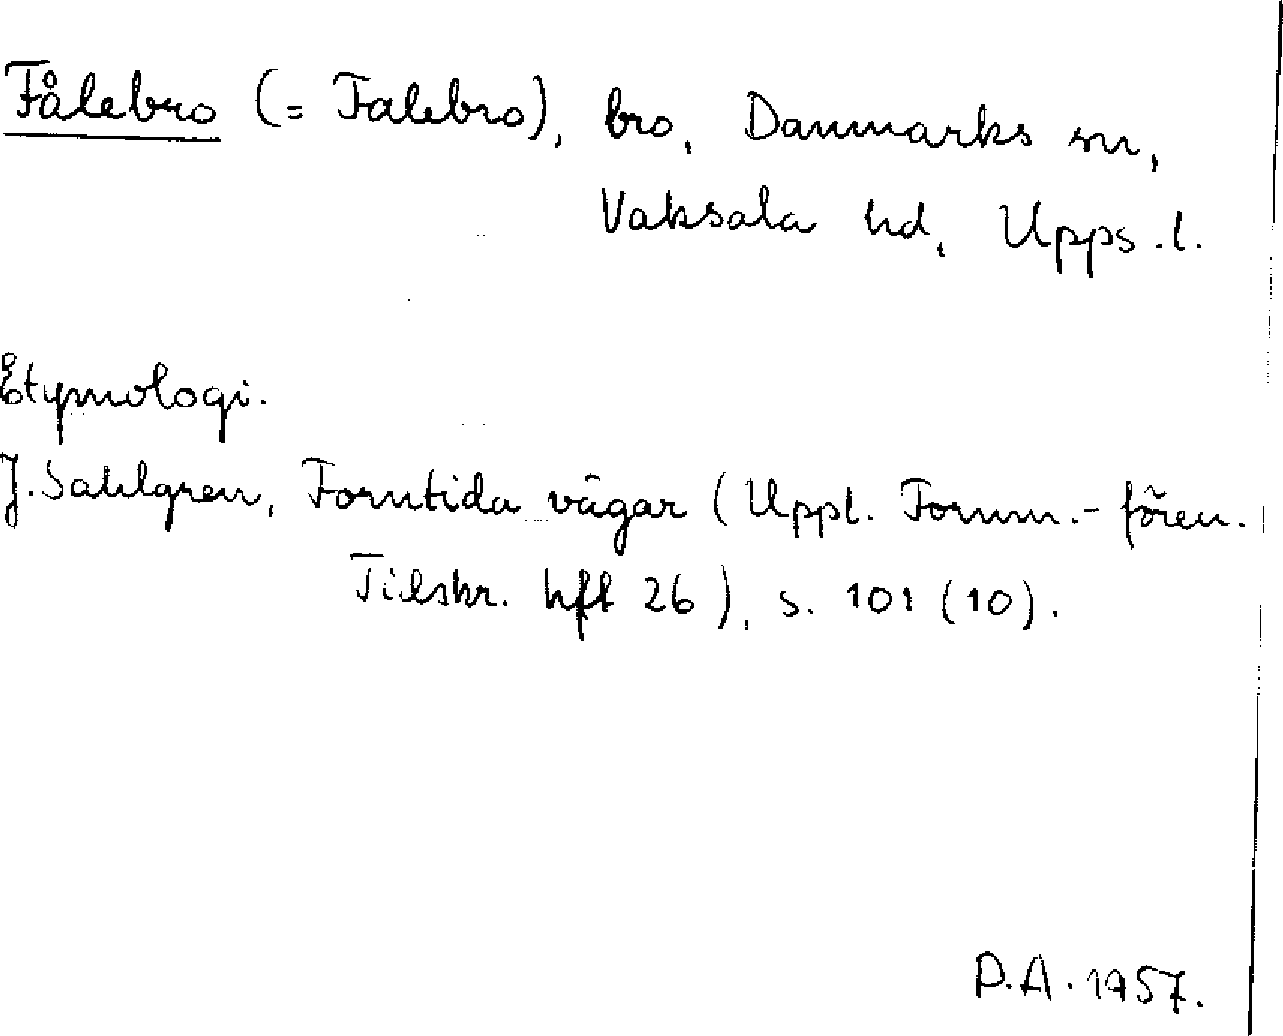 Fålebro (= Falebro), bro, Danmarks sn,
Vaksala hd, Upps.l.
Etymologi.
J. Sahlgren, Forntida vägar (Uppl. Fornm.-fören.
Tidskr. hft 26), s. 101 (10).
P.A. 1957.